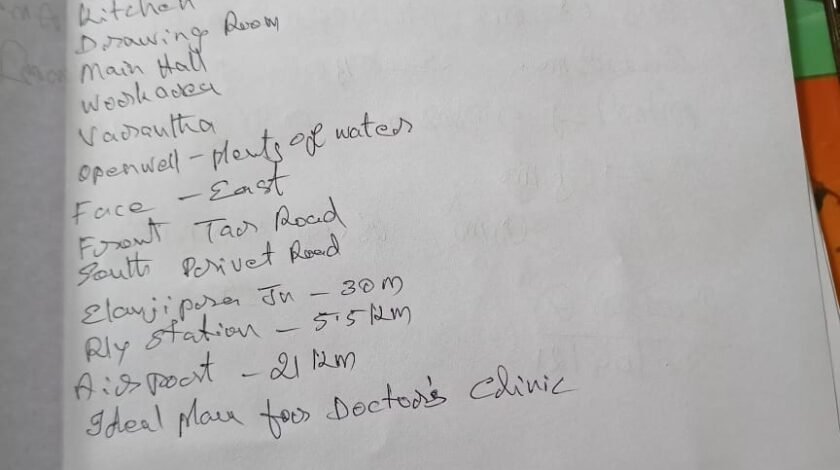 Kitchen
Drawing Room
Main Hall
Workarea
Varantha
Openwell - plenty of water
Face - East
Front Tar Road
South Privet Road
Elanjipra Jn - 30 m
Rly Station - 5.5 km
Airport - 21 km
Ideal place for Doctor's Clinic